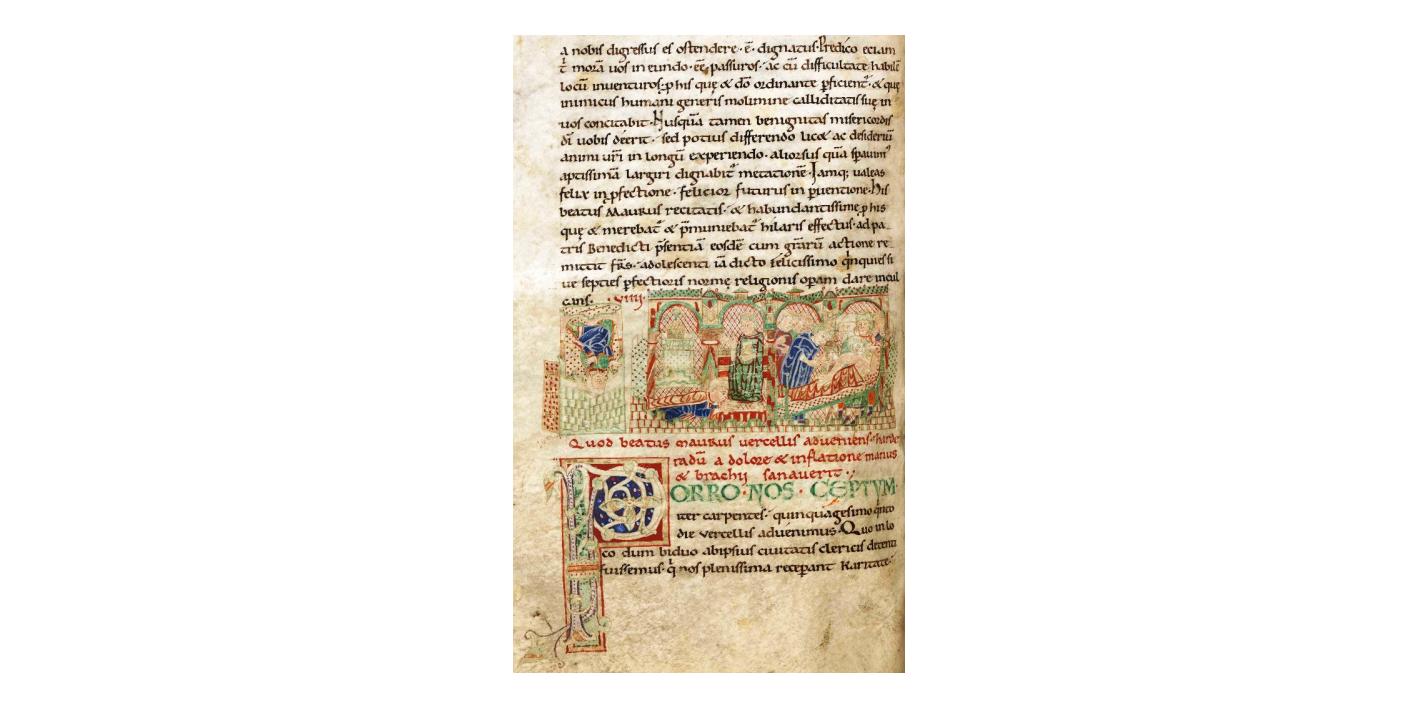 a nobis digressus es ostendere·ē·dignatus·Predico eciam
t̄ morā uos in eundo·eē passuros·ac cū difficultate habilē
locū inventuros·p̱ his quę & dō ordinante p̱ficient᷒·& quę
inimicus humani generis molimine calliditatis suę in
uos concitabit·Nusquā tamen benignitas misericordis
dī uobis deerit·sed potius differendo lic& ac desideriū
animi ur̄i in longū experiendo·aliorsus quā
aptissimā largiri dignabit᷒ metationē·Iamq; ualeas
felix in p̱fectione·felicior futurus in p̱uentione·His
beatus Maurus recitatis·& habundantissime p̱ his
quę & merebat᷒ & p̄muniebat᷒ hilaris effectus·ad pa
tris Benedicti p̄sentiā eosdē cum grārū actione re
mittit fr̄s·adolescenti iā dicto felicissimo q̇nquies si
ue septies p̱fectioris normę religionis op̱am dare incul
cans· ·VIIII·
Quod beatus maurus vercellis adveniens·harde
radū a dolore & inflatione manus
& brachij sanaverit·
PORRO·NOS·CĘPTVM·
iter carpentes·quinquagesimo q̇nto
die vercellis advenimus·Quo in lo
co dum biduo ab ipsius civitatis clericis detenti
fuissemus·q̇ nos plenissima recep̱ant karitate·